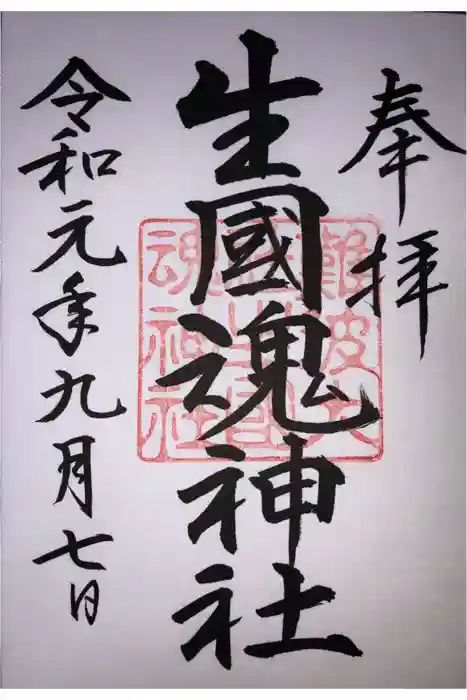 奉拝
生國魂神社
令和元年九月七日
難波大
魂神社